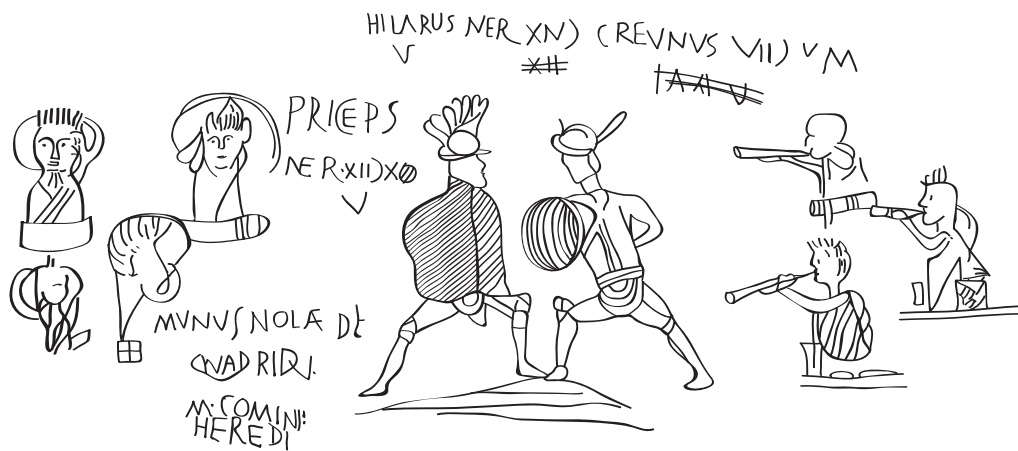 HILARUS NER XIV) CREVNVS VII) V M
V
XII
PRICEPS
NER·XII)XO
V
MVNVS NOLÆ DE
QVADRIDV.
M·COMINI:
HEREDI